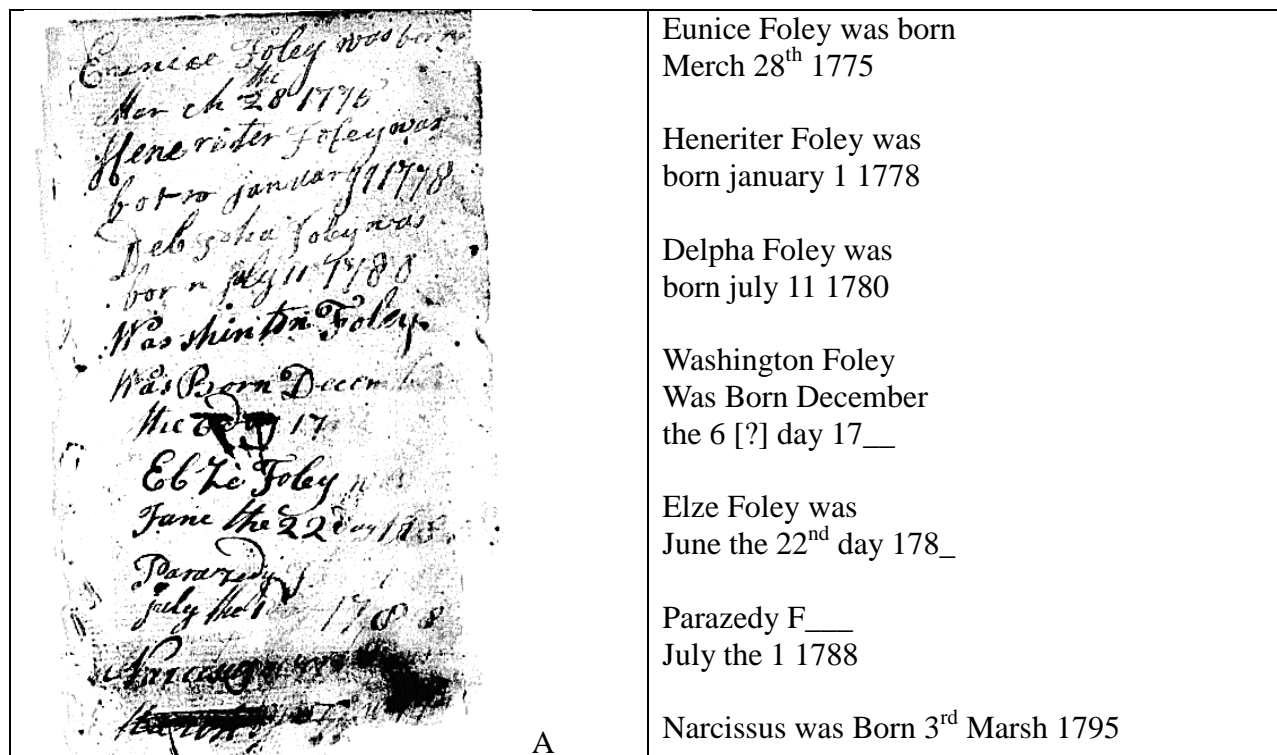 Eunice Foley was born
the
March 28 1775
Heneriter Foley was
born january 1 1778
Delpha Foley was
born july 11 178
Washinton Foley
Was Born Decem
the 17
Elze Foley
June the 22 day
Parazedy
july the 1 1788
A
Eunice Foley was born
Merch 28th 1775
Heneriter Foley was
born january 1 1778
Delpha Foley was
born july 11 1780
Washington Foley
Was Born December
the 6 [?] day 17__
Elze Foley was
June the 22nd day 178_
Parazedy F___
July the 1 1788
Narcissus was Born 3rd Marsh 1795